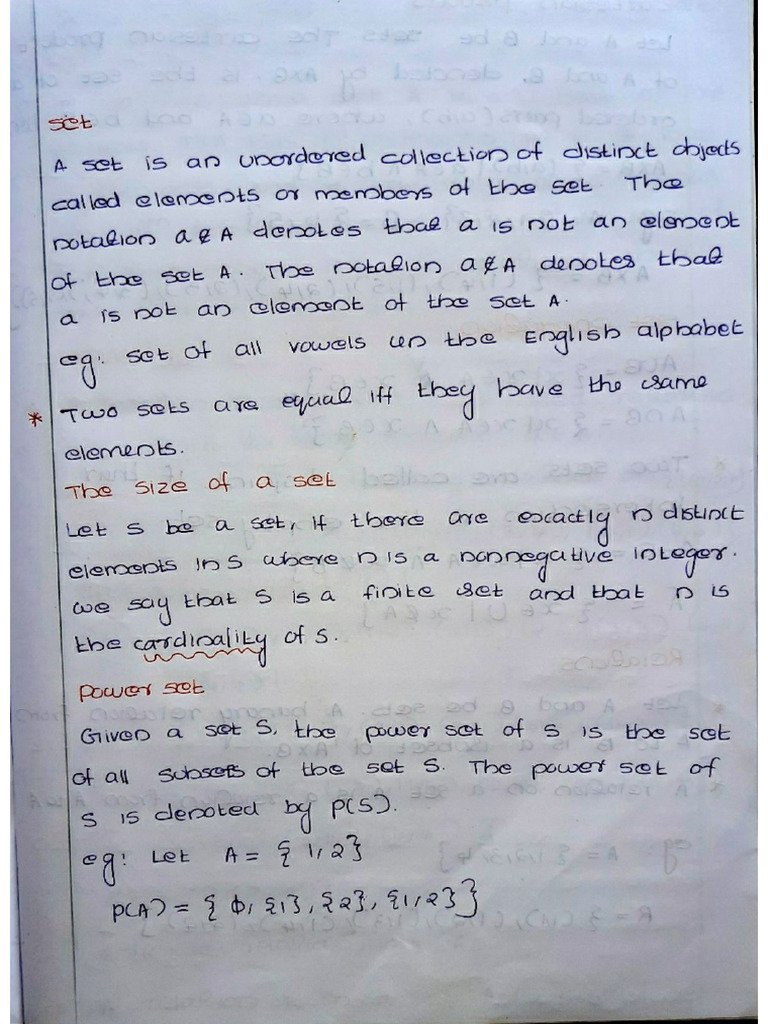 set
A set is an unordered collection of distinct objects
called elements or members of the set. The
notation a ∉ A denotes that a is not an element
of the set A. The notation a ∉ A denotes that
a is not an element of the set A.
eg: set of all vowels in the English alphabet
* Two sets are equal iff they have the same
elements.
The size of a set
Let S be a set, if there are exactly n distinct
elements in S where n is a nonnegative integer.
we say that S is a finite set and that n is
the cardinality of S.
Power set
Given a set S, the power set of S is the set
of all subsets of the set S. The power set of
S is denoted by P(S).
eg: Let A = {1,2}
P(A) = {ϕ, {1}, {2}, {1,2}}